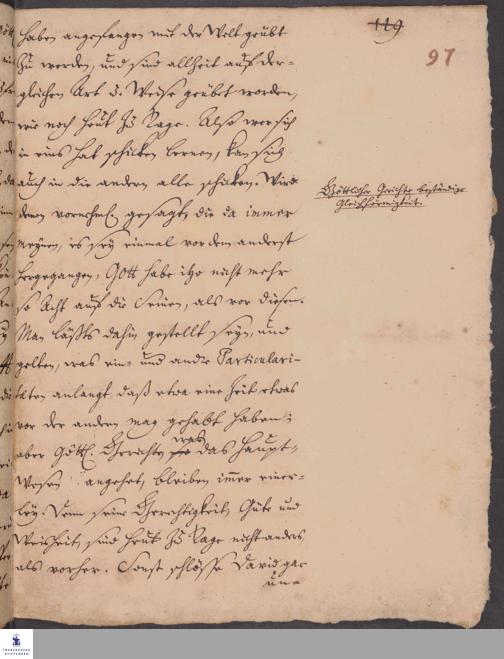 119
97
haben angefangen mit der Welt geübt
zu werden, und sind allzeit auf der-
gleichen Art u. Weise geübet worden,
wie noch heut zu Tage. Also wer sich
in eins hat schicken lernen, kan sich
auch in die andern alle schicken. Wird
denen vornehml. gesagt, die da immer
meynen, es sey einmal vor dem anderst
hergegangen, Gott habe itzo nicht mehr
so Acht auf die Seinen, als vor diesem.
Man läßts dahin gestellt seyn, und
gelten, was ein- und andre Particulari-
täten anlangt, daß etwa eine Zeit etwas
vor der andern mag gehabt haben;
aber Göttl. Gerichte was das Haupt-
Wesen angehet, bleiben immer einer-
ley. Denn seine Gerechtigkeit, Güte und
Weisheit, sind heut zu Tage nicht anders
als vorher. Sonst schlösse David gar
un-
Göttlicher Gerichte beständige
Gleichförmigkeit.
FRANCKESCHE
STIFTUNGEN